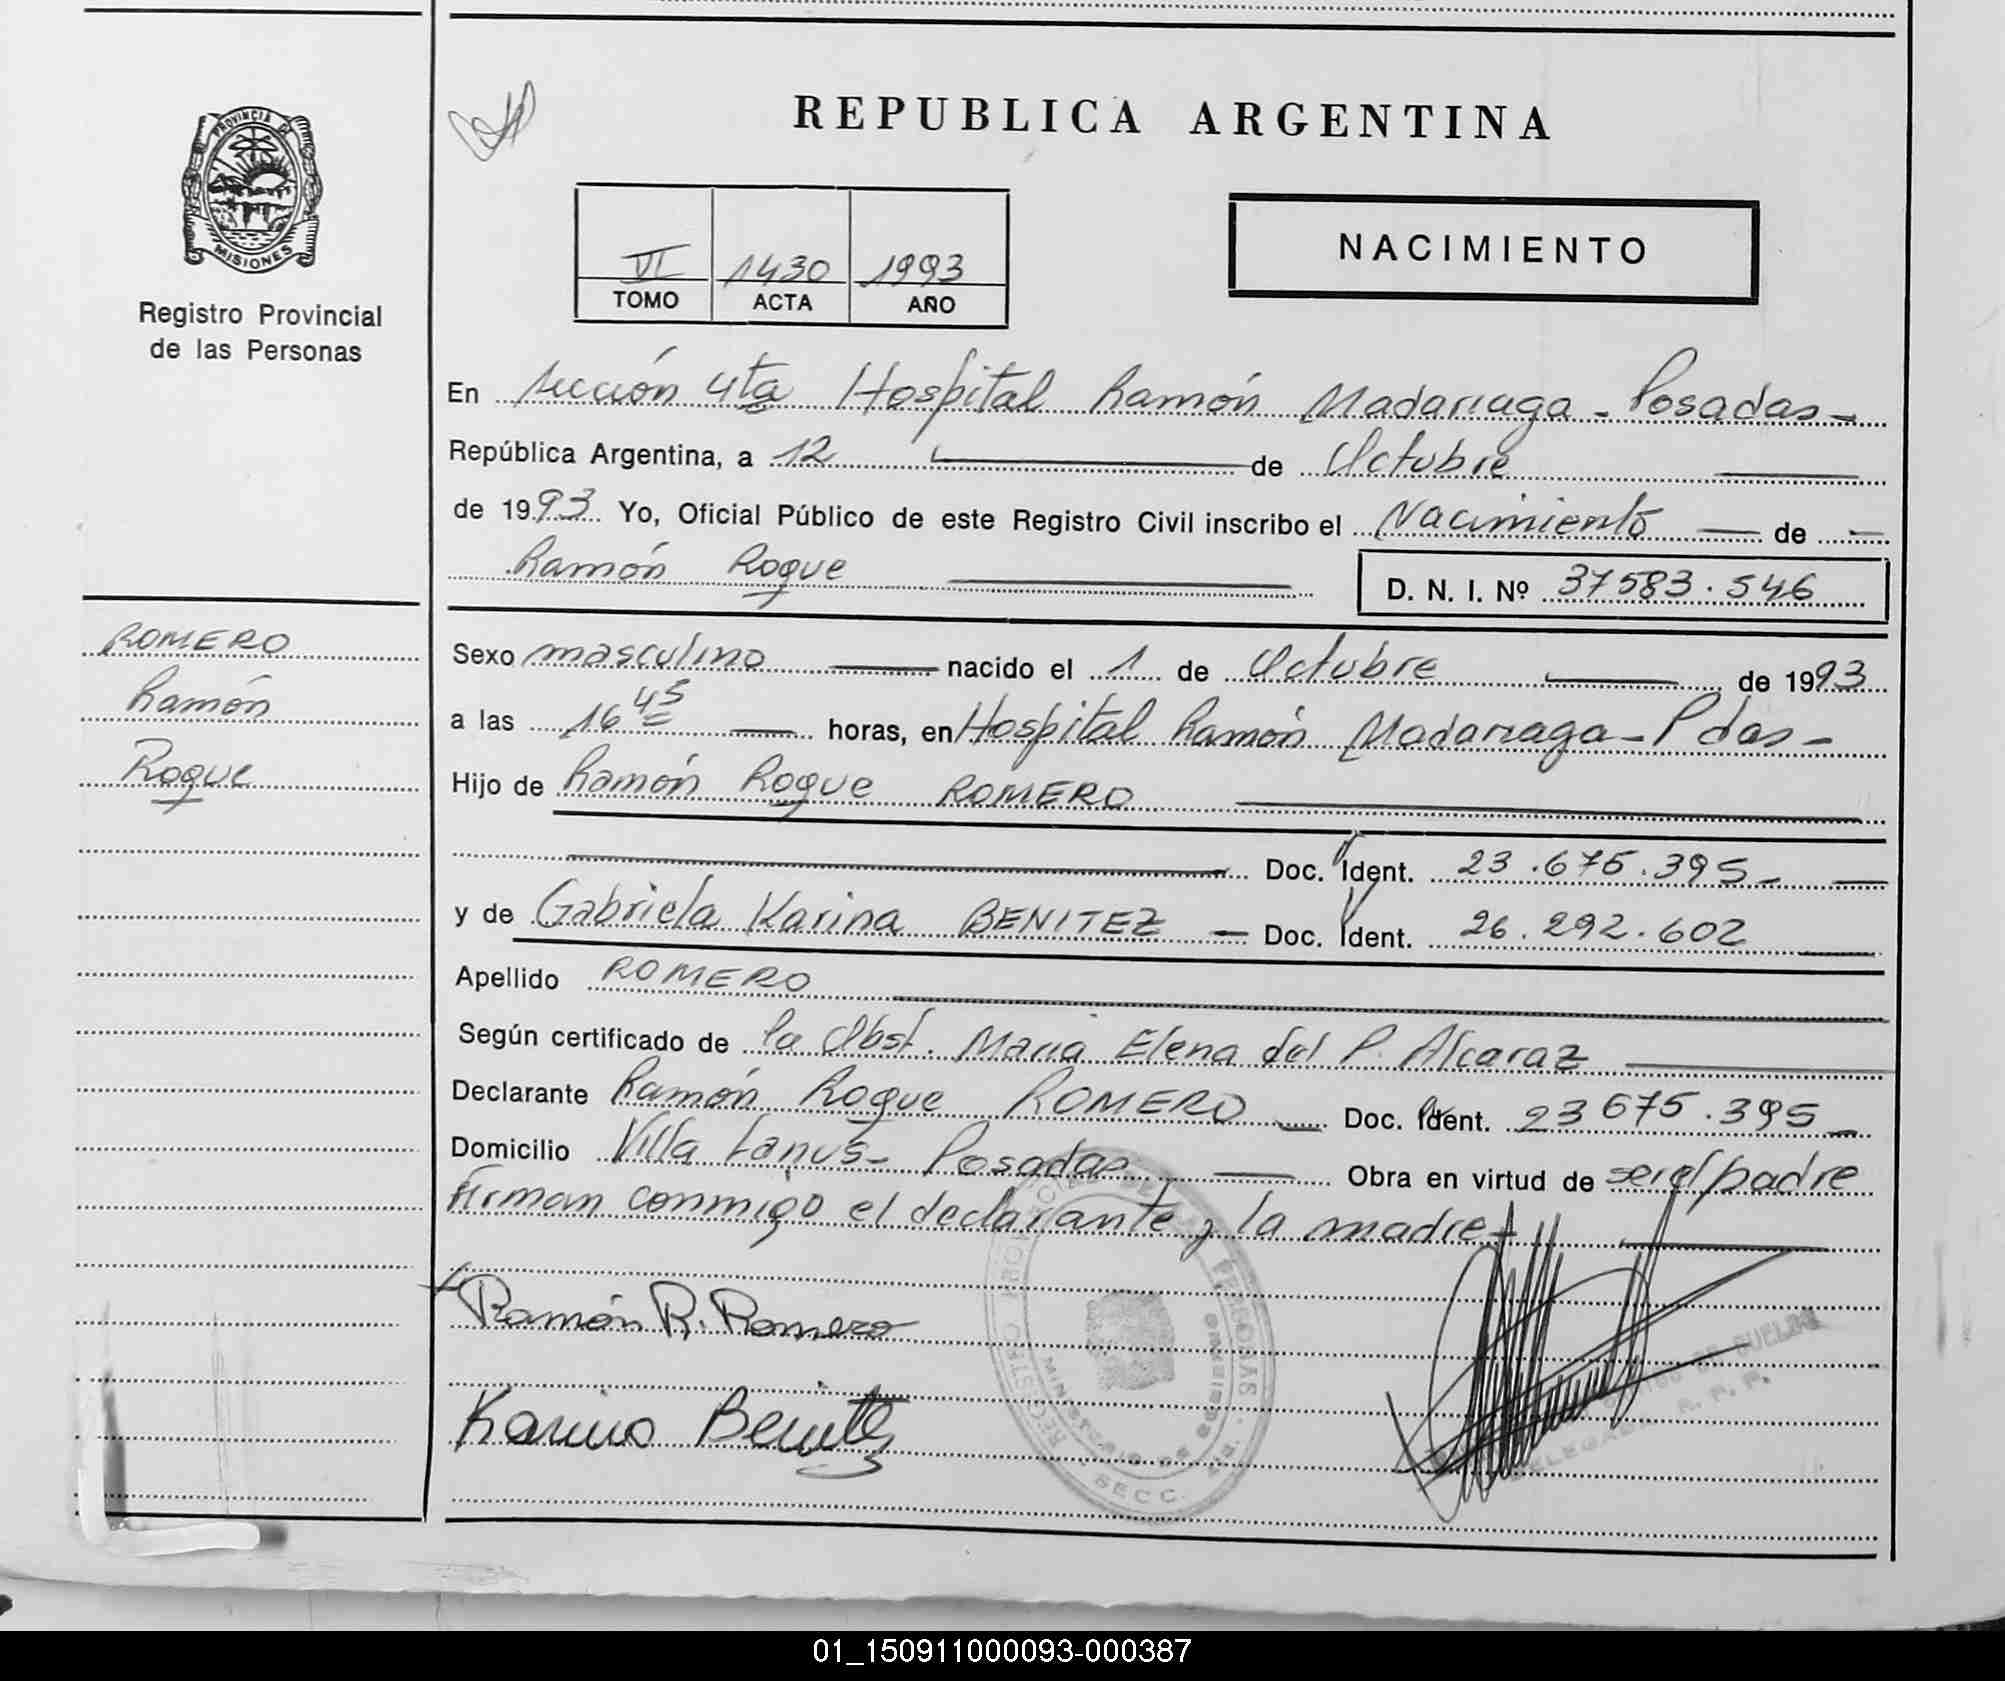 REPUBLICA ARGENTINA
PROVINCIA DE
MISIONES
Registro Provincial
de las Personas
VI 1430 1993
TOMO ACTA AÑO
NACIMIENTO
En sección 4ta Hospital Ramón Madariaga - Posadas -
República Argentina, a 12 de Octubre
de 1993 Yo, Oficial Público de este Registro Civil inscribo el Nacimiento de
Ramón Roque
D. N. I. Nº 37583.546
ROMERO
Ramón
Roque
Sexo masculino nacido el 1 de Octubre de 1993
a las 16 45 horas, en Hospital Ramón Madariaga - Pdas -
Hijo de Ramón Roque ROMERO
Doc. Ident. 23.675.395 -
y de Gabriela Karina BENITEZ - Doc. Ident. 26.292.602
Apellido ROMERO
Según certificado de la Obst. Maria Elena del P. Alcaraz
Declarante Ramón Roque ROMERO Doc. Ident. 23675.395 -
Domicilio Villa Lanús - Posadas Obra en virtud de ser el padre
Firman conmigo el declarante y la madre -
Ramón R. Romero
Karina Benitez
REGISTRO PROVINCIAL DE LAS PERSONAS
MINISTERIO DE GOBIERNO
SECC.
DELEGADA R. P. P.
01_150911000093-000387